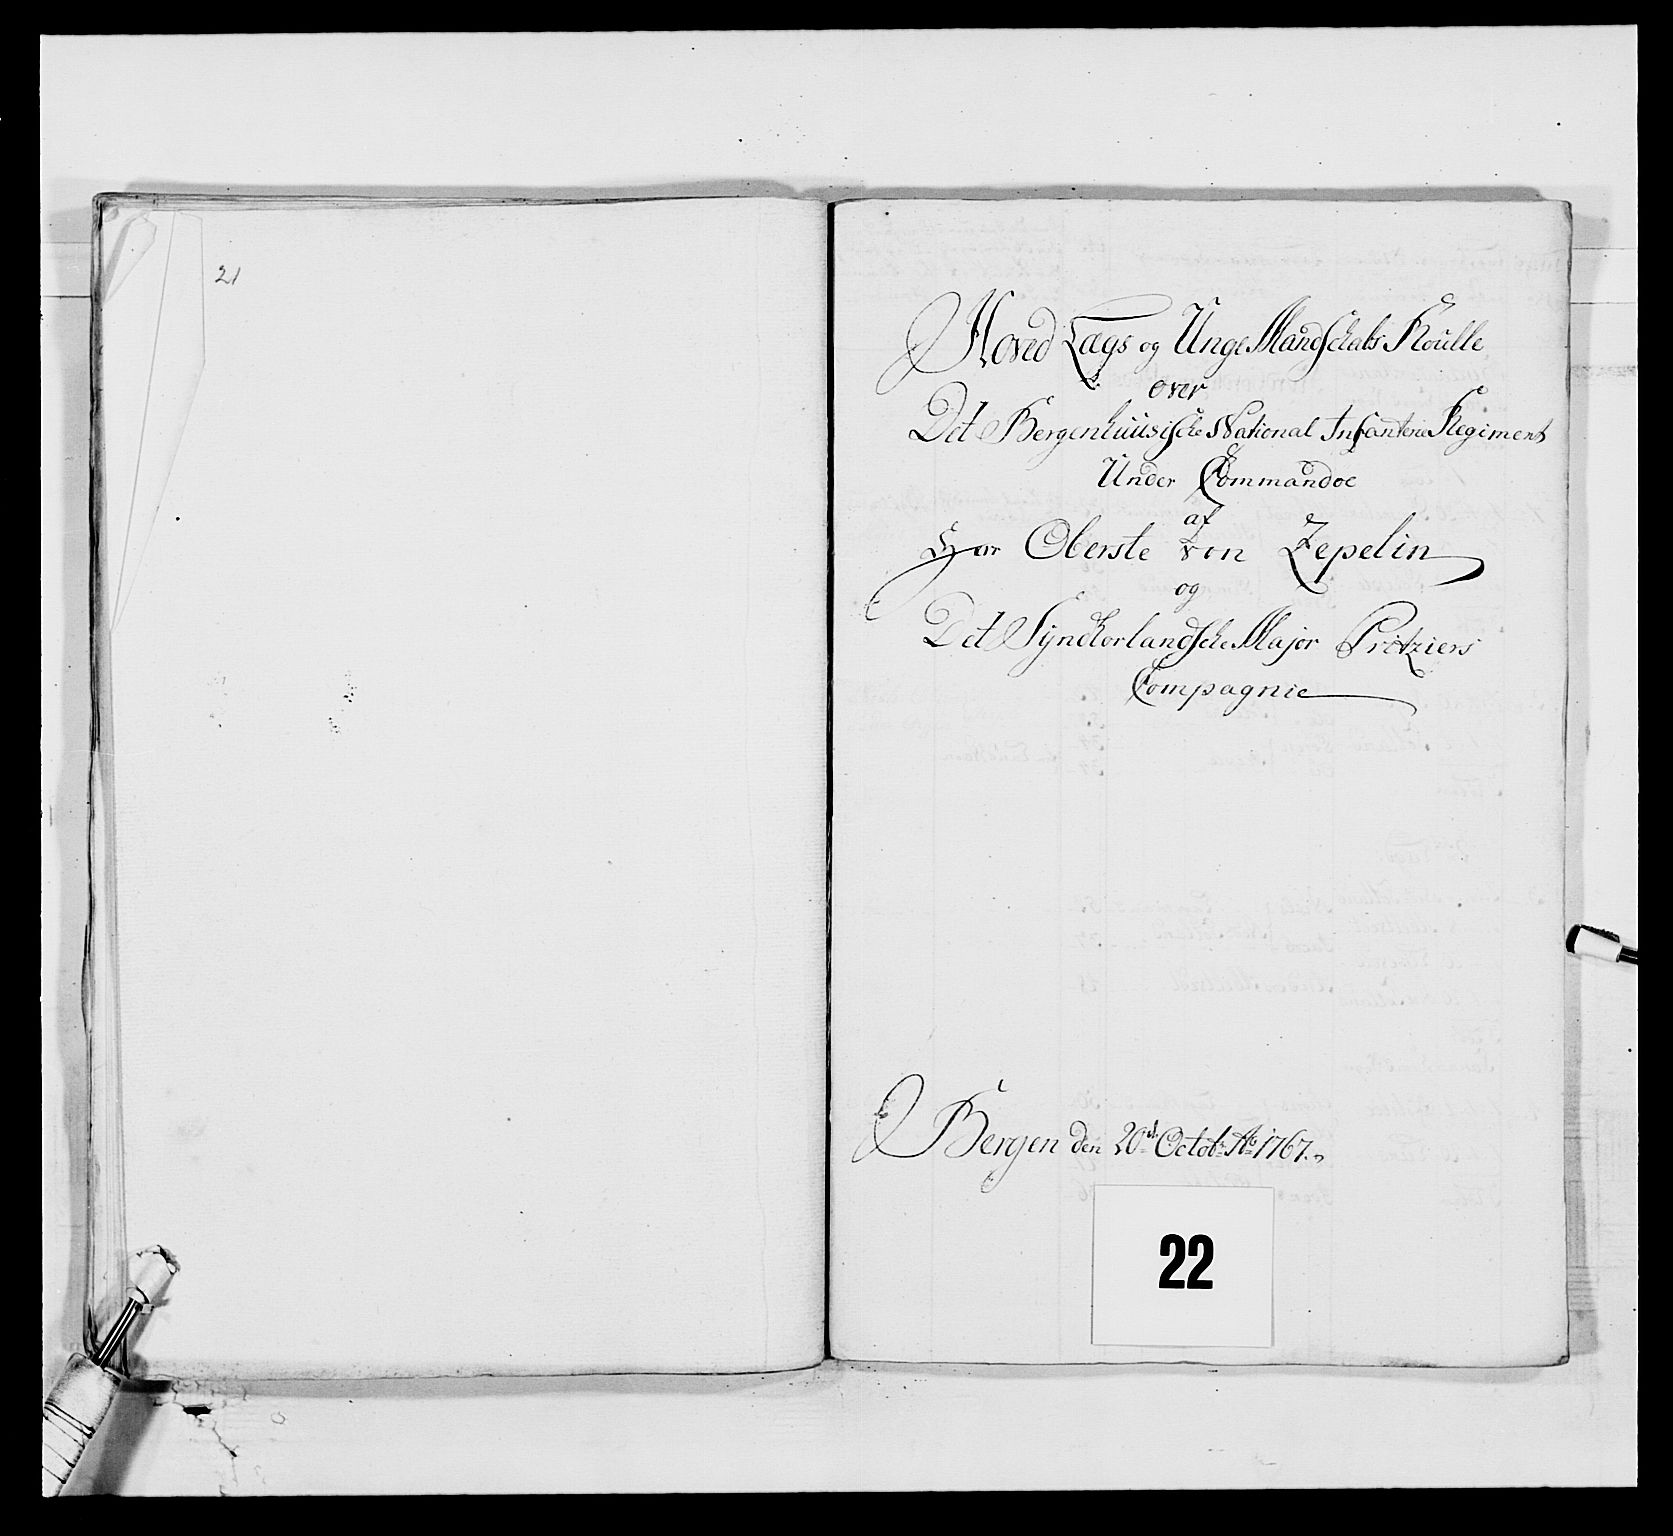 21
Hoved Lægs og Unge Mandskabs Roulle
over
Det Bergenhuusiske National Infanterie Regiment
Under Commandoe
af
Herr Oberste von Zepelin
og
Det Syndhorlandske Major Pritziers
Compagnie
Bergen den 20d. Octobr. Ao 1767.
22